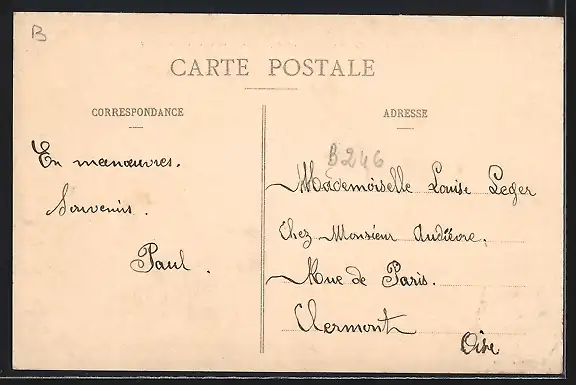 B
CARTE POSTALE
CORRESPONDANCE
ADRESSE
B246
En manœuvres.
Souvenirs.
Paul.
Mademoiselle Louise Leger
Chez Monsieur Audièvre.
Rue de Paris.
Clermont
Oise